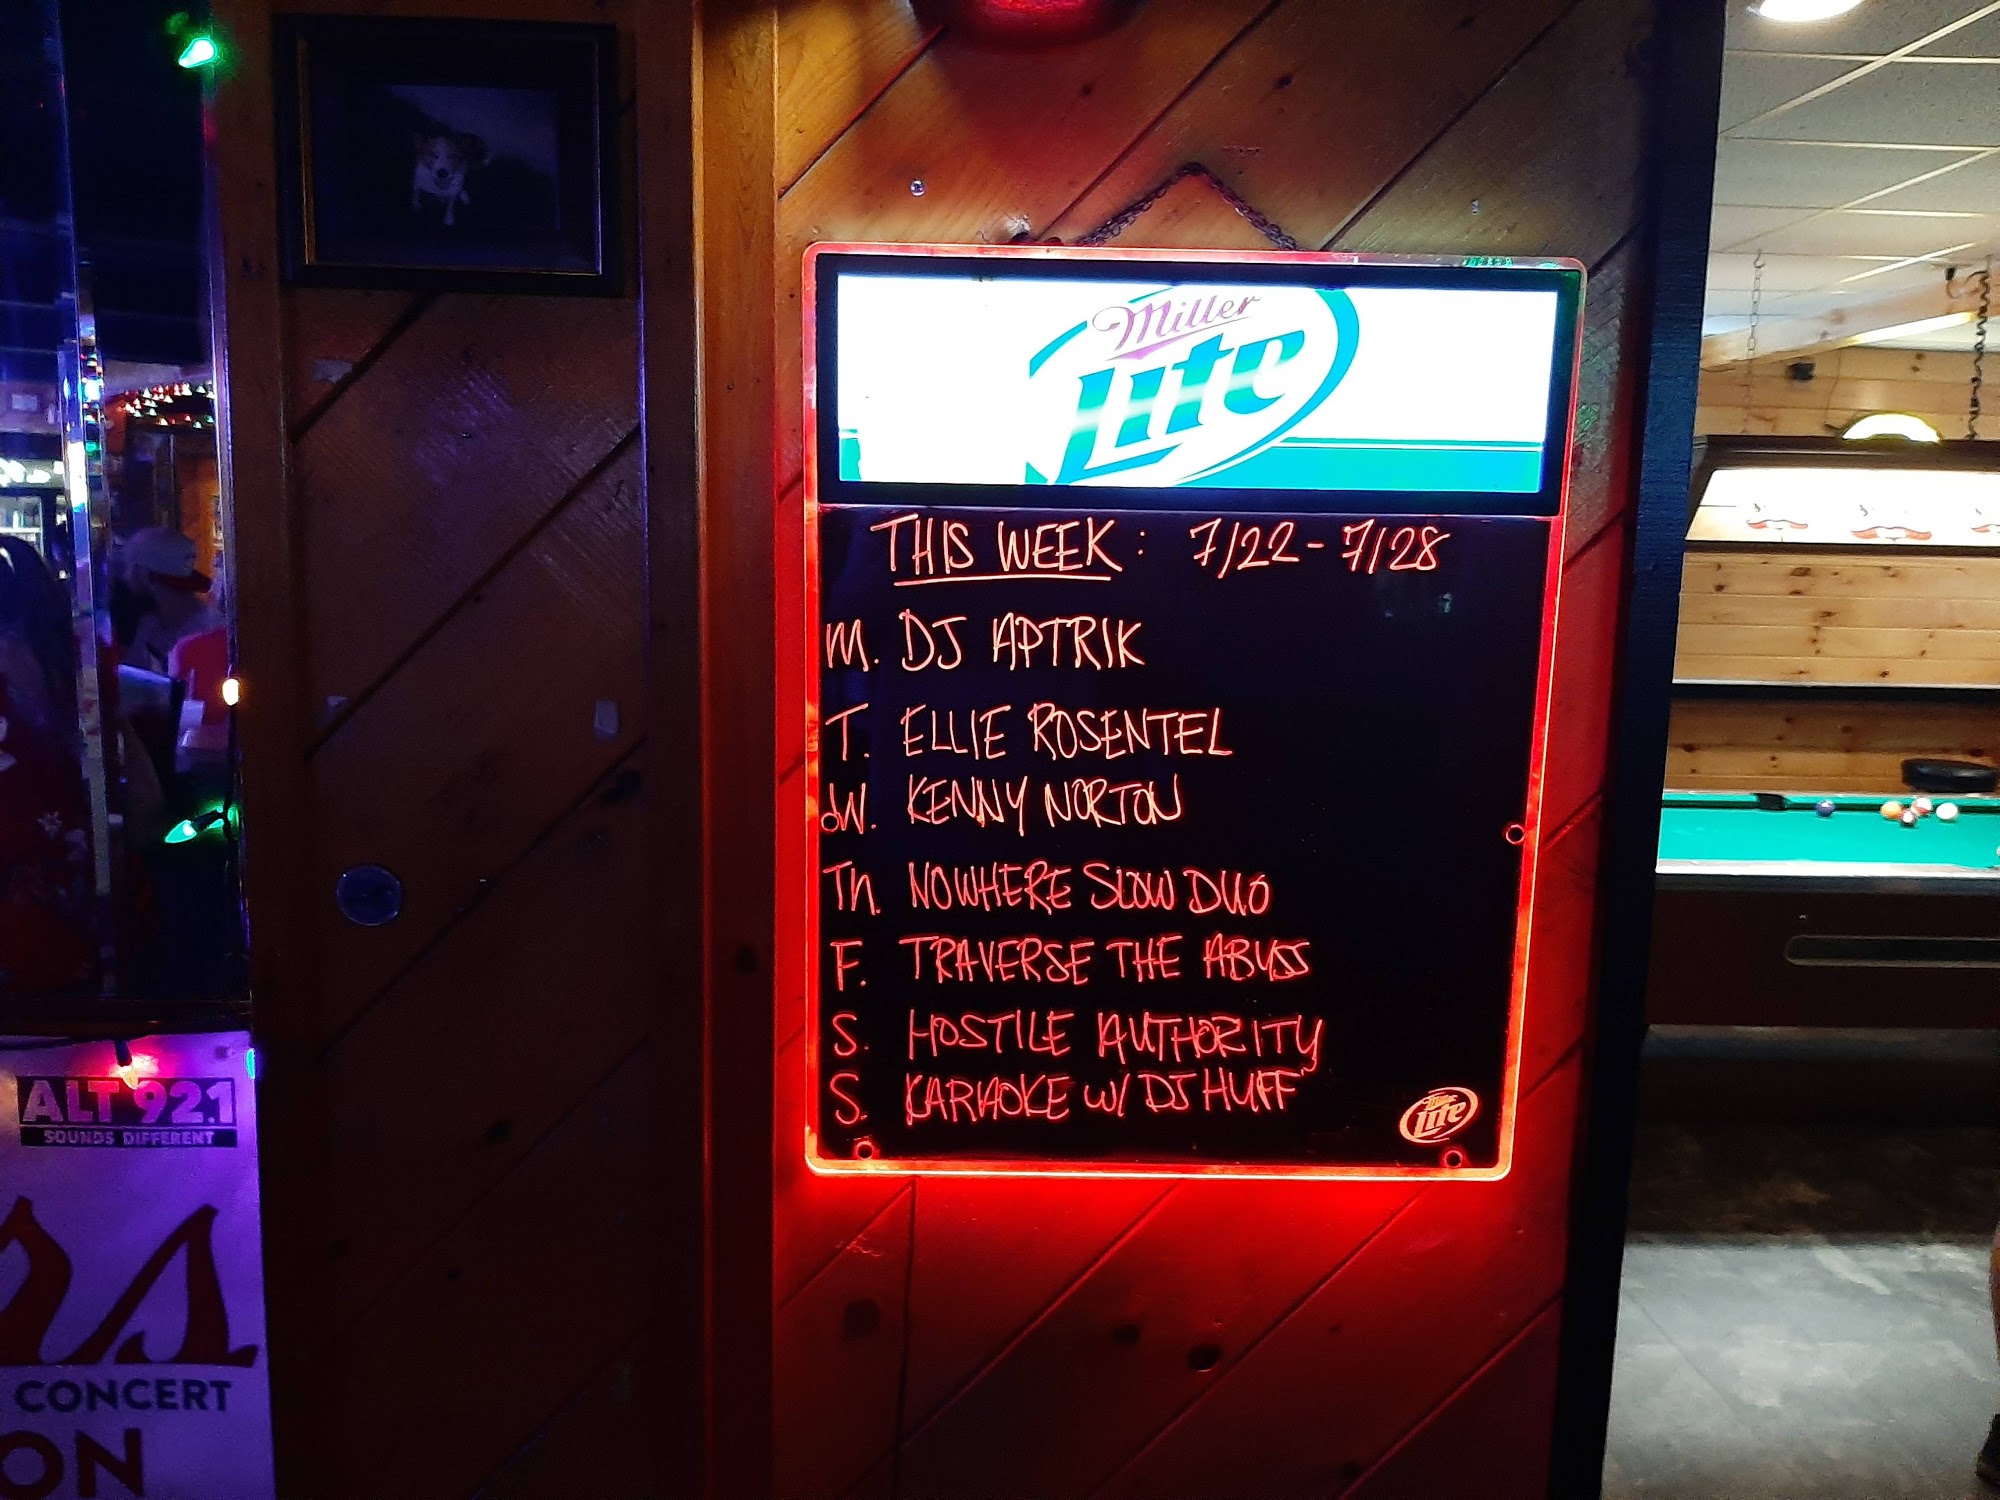 Miller
Lite
THIS WEEK: 7/22-7/28
M. DJ APTRIK
T. ELLIE ROSENTEL
W. KENNY NORTON
Th. NOWHERE SLOW DUO
F. TRAVERSE THE ABYSS
S. HOSTILE AUTHORITY
S. KARAOKE W/ DJ HUFF
Miller
Lite
ALT 92.1
SOUNDS DIFFERENT
rs
CONCERT
ON